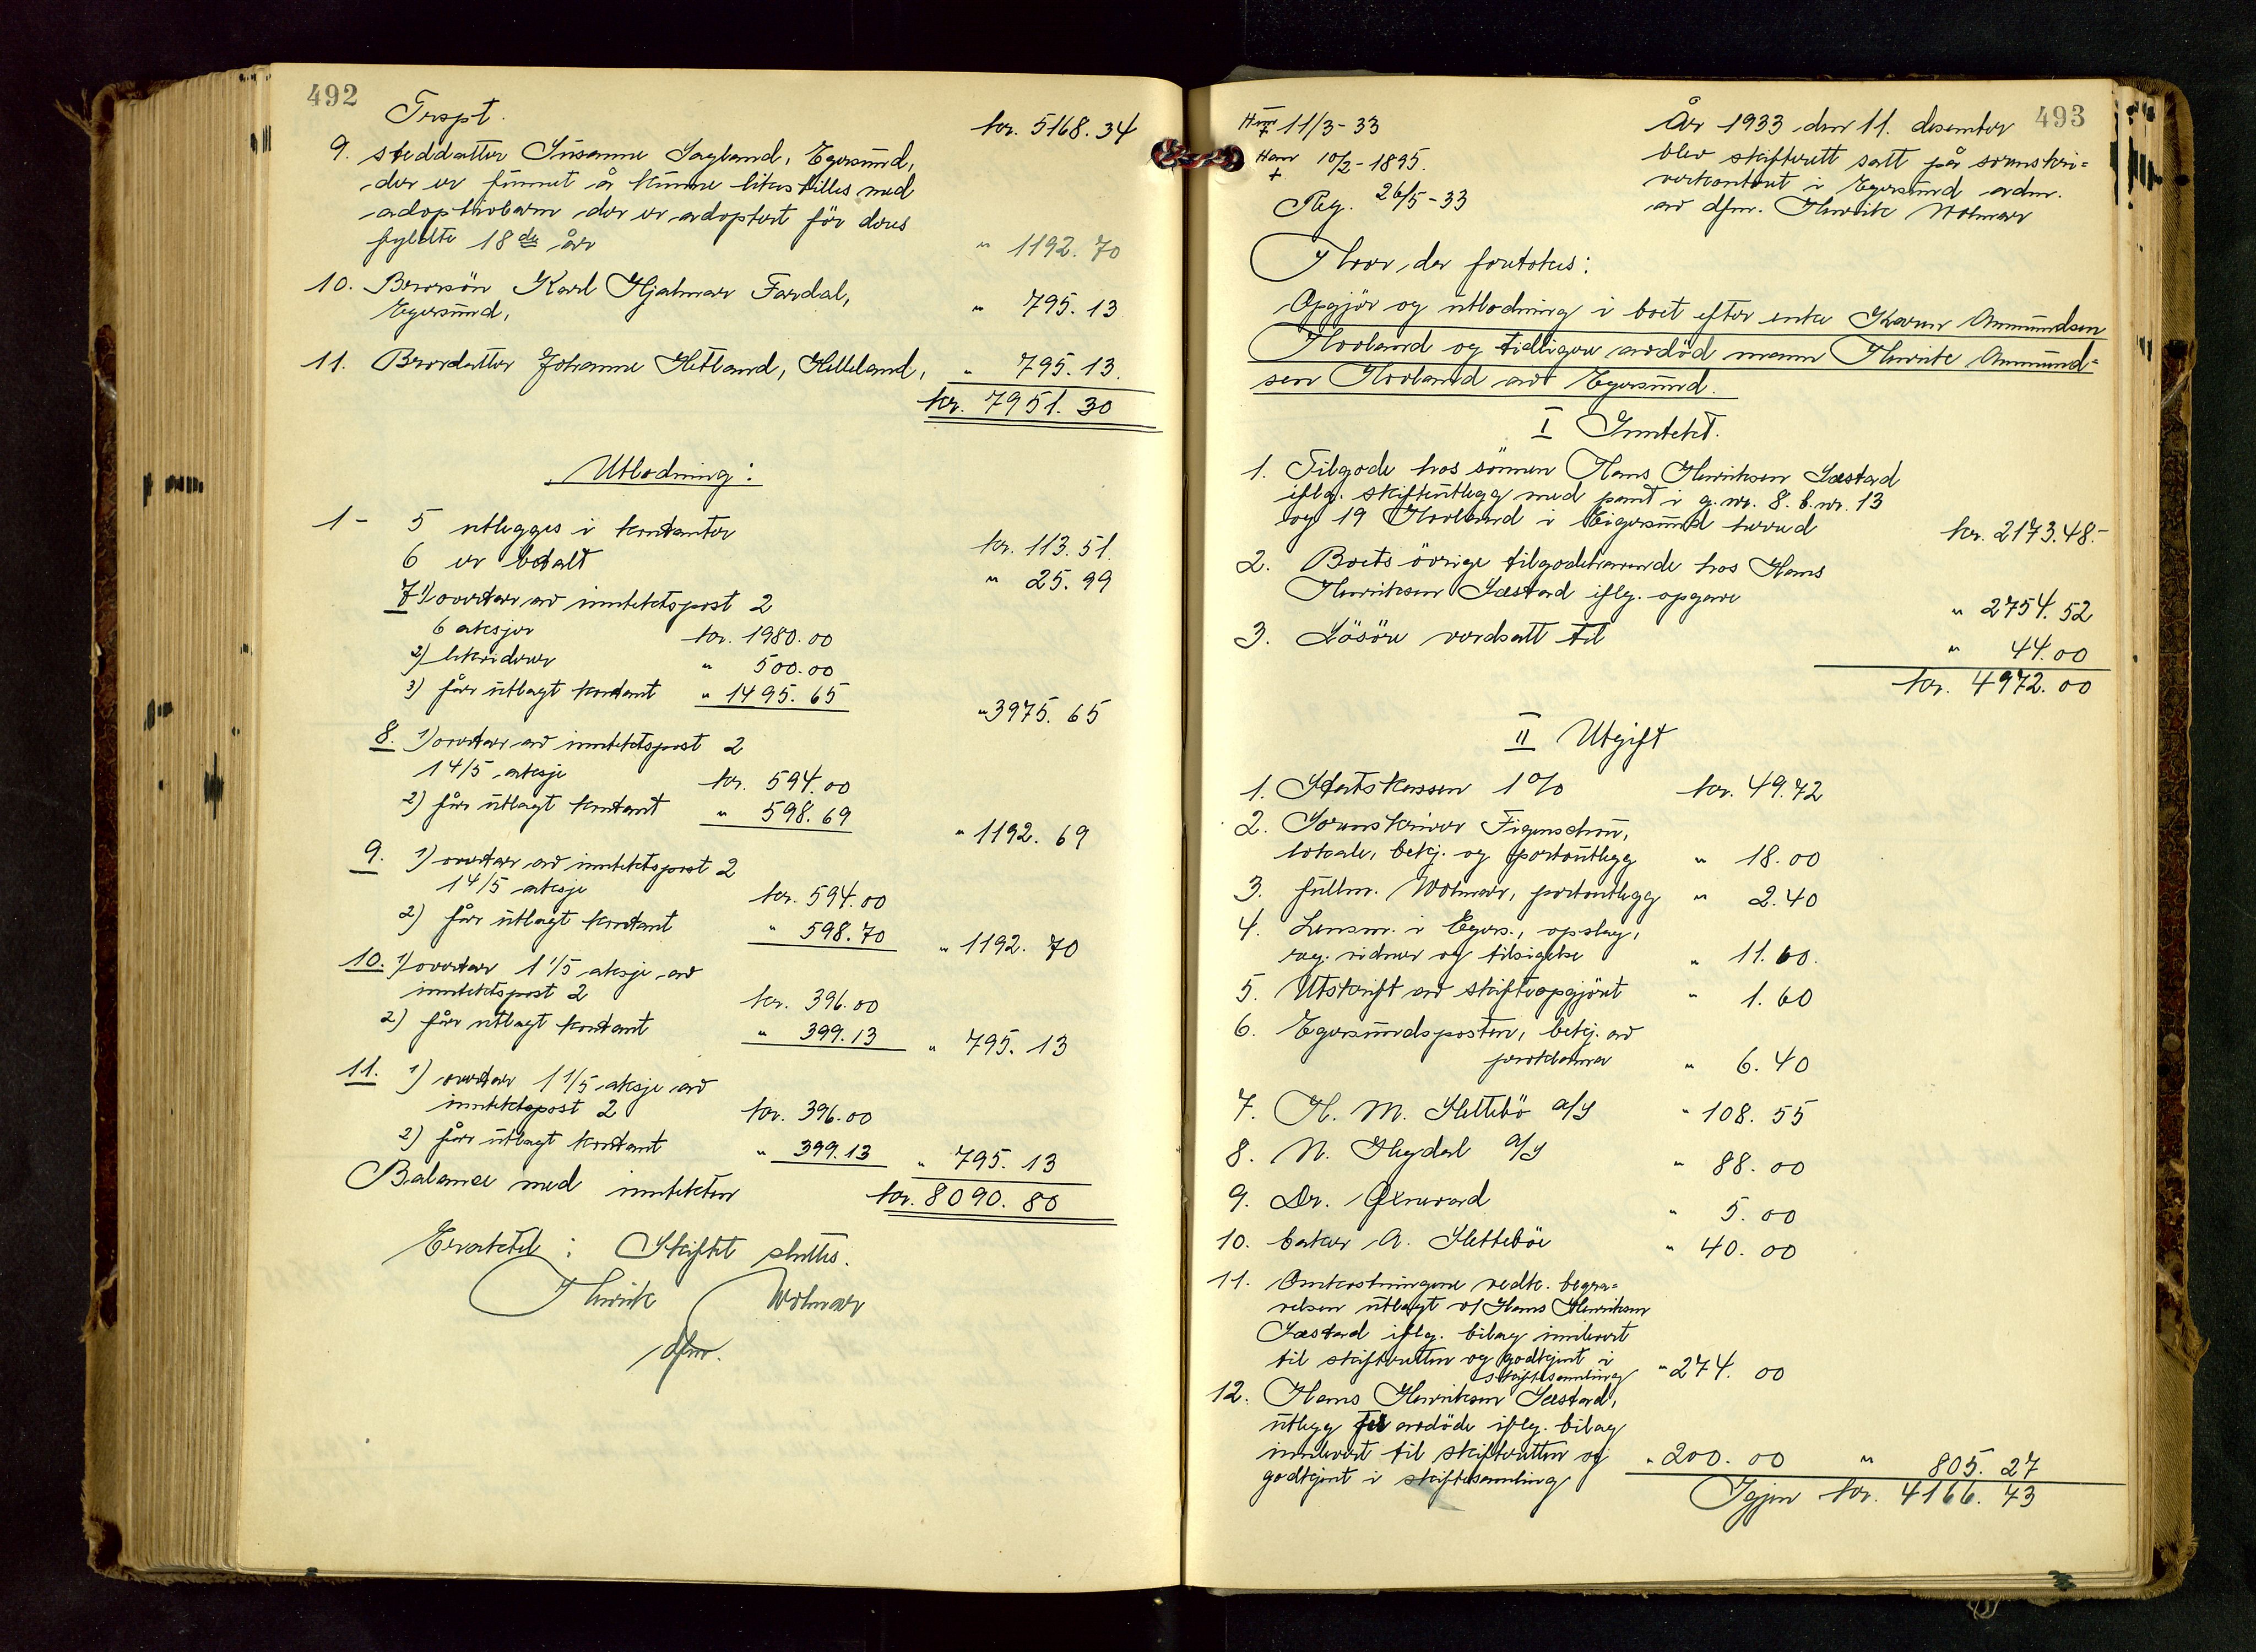 492
Trspt. kr. 5168.34
9. steddatter Susanne Sagland, Egersund,
der er funnet å kunne likestilles med
adoptivbarn der er adoptert för deres
fyldte 18de år " 1192.70
10. Brorsön Karl Hjalmar Fardal,
Egersund, " 795.13
11. Brordatter Johanne Hetland, Helleland, " 795.13
kr. 7951.30
Utlodning:
1 - 5 utlegges i kontanter kr. 113.51
6 er betalt " 25.99
7 1) overtar av inntektspost 2
6 aksjer kr. 1980.00
2) " 500.00
3) får utlagt kontant " 1495.65 " 3975.65
8. 1) overtar av inntektspost 2
1 4/5 aksje kr. 594.00
2) får utlagt kontant " 598.69 " 1192.69
9. 1) overtar av inntektspost 2
1 4/5 aksje kr. 594.00
2) får utlagt kontant " 598.70 " 1192.70
10. 1) overtar 1 1/5 aksje av
inntektspost 2 kr. 396.00
2) får utlagt kontant " 399.13 " 795.13
11. 1) overtar 1 1/5 aksje av
inntektspost 2 kr. 396.00
2) får utlagt kontant " 399.13 " 795.13
Balanse med inntekten kr. 8090.80
Eraktet: Skiftet sluttes.
Henrik Wolmar
dfm.
493
11/3-33
Han + 10/2-1895.
Reg. 26/5-33
År 1933 den 11. desember
blev skifterett satt på sorenskri-
verkontoret i Egersund adm.
av dfm. Henrik Wolmar
Hvor da foretokes:
Opgjör og utlodning i boet efter enke Karen Anmundsen
Hovland og tidligere avdöd mann Henrik Anmund-
sen Hovland av Egersund.
I Inntekt.
1. Tilgode hos sönnen Hans Henriksen Sæstad
iflg. skifteutlegg med pant i g.nr. 8. b.nr. 13
og 19 Hovland i Eigersund herred kr. 2173.48.-
2. Boets övrige tilgodehavende hos Hans
Henriksen Sæstad iflg. opgave " 2754.52
3. Lösöre verdsatt til " 44.00
kr. 4972.00
II Utgift
1. Statskassen 1% kr. 49.72
2. Sorenskriver Figenschou,
lokale, bekj. og portoutlegg " 18.00
3. fullm. Wolmar, portoutlegg " 2.40
4. Lensm. i Egers., opslag,
reg. vidner og tilsigelse " 11.60.
5. Utskrift av skifteopgjöret " 1.60
6. Egersundsposten, bekj. av
proklama " 6.40
7. H. M. Slettebö a/s " 108.55
8. N. Hegdal a/s " 88.00
9. Dr. Oxnevad " 5.00
10. baker A. Sletteböe " 40.00
11. Omkostningene vedk. begra-
velsen utlagt v/ Hans Henriksen
Sæstad iflg. bilag innlevert
til skifteretten og godkjent i
skiftesamling " 274.00
12. Hans Henriksen Sæstad,
utlegg for avdöde iflg. bilag
innlevert til skifteretten og
godkjent i skiftesamling " 200.00 " 805.27
Igjen kr. 4166.73